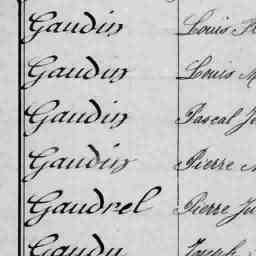 Gaudin Louis
Gaudin Louis M
Gaudin Pascal
Gaudin Pierre
Gaudrel Pierre Ju
Gaudu Joseph